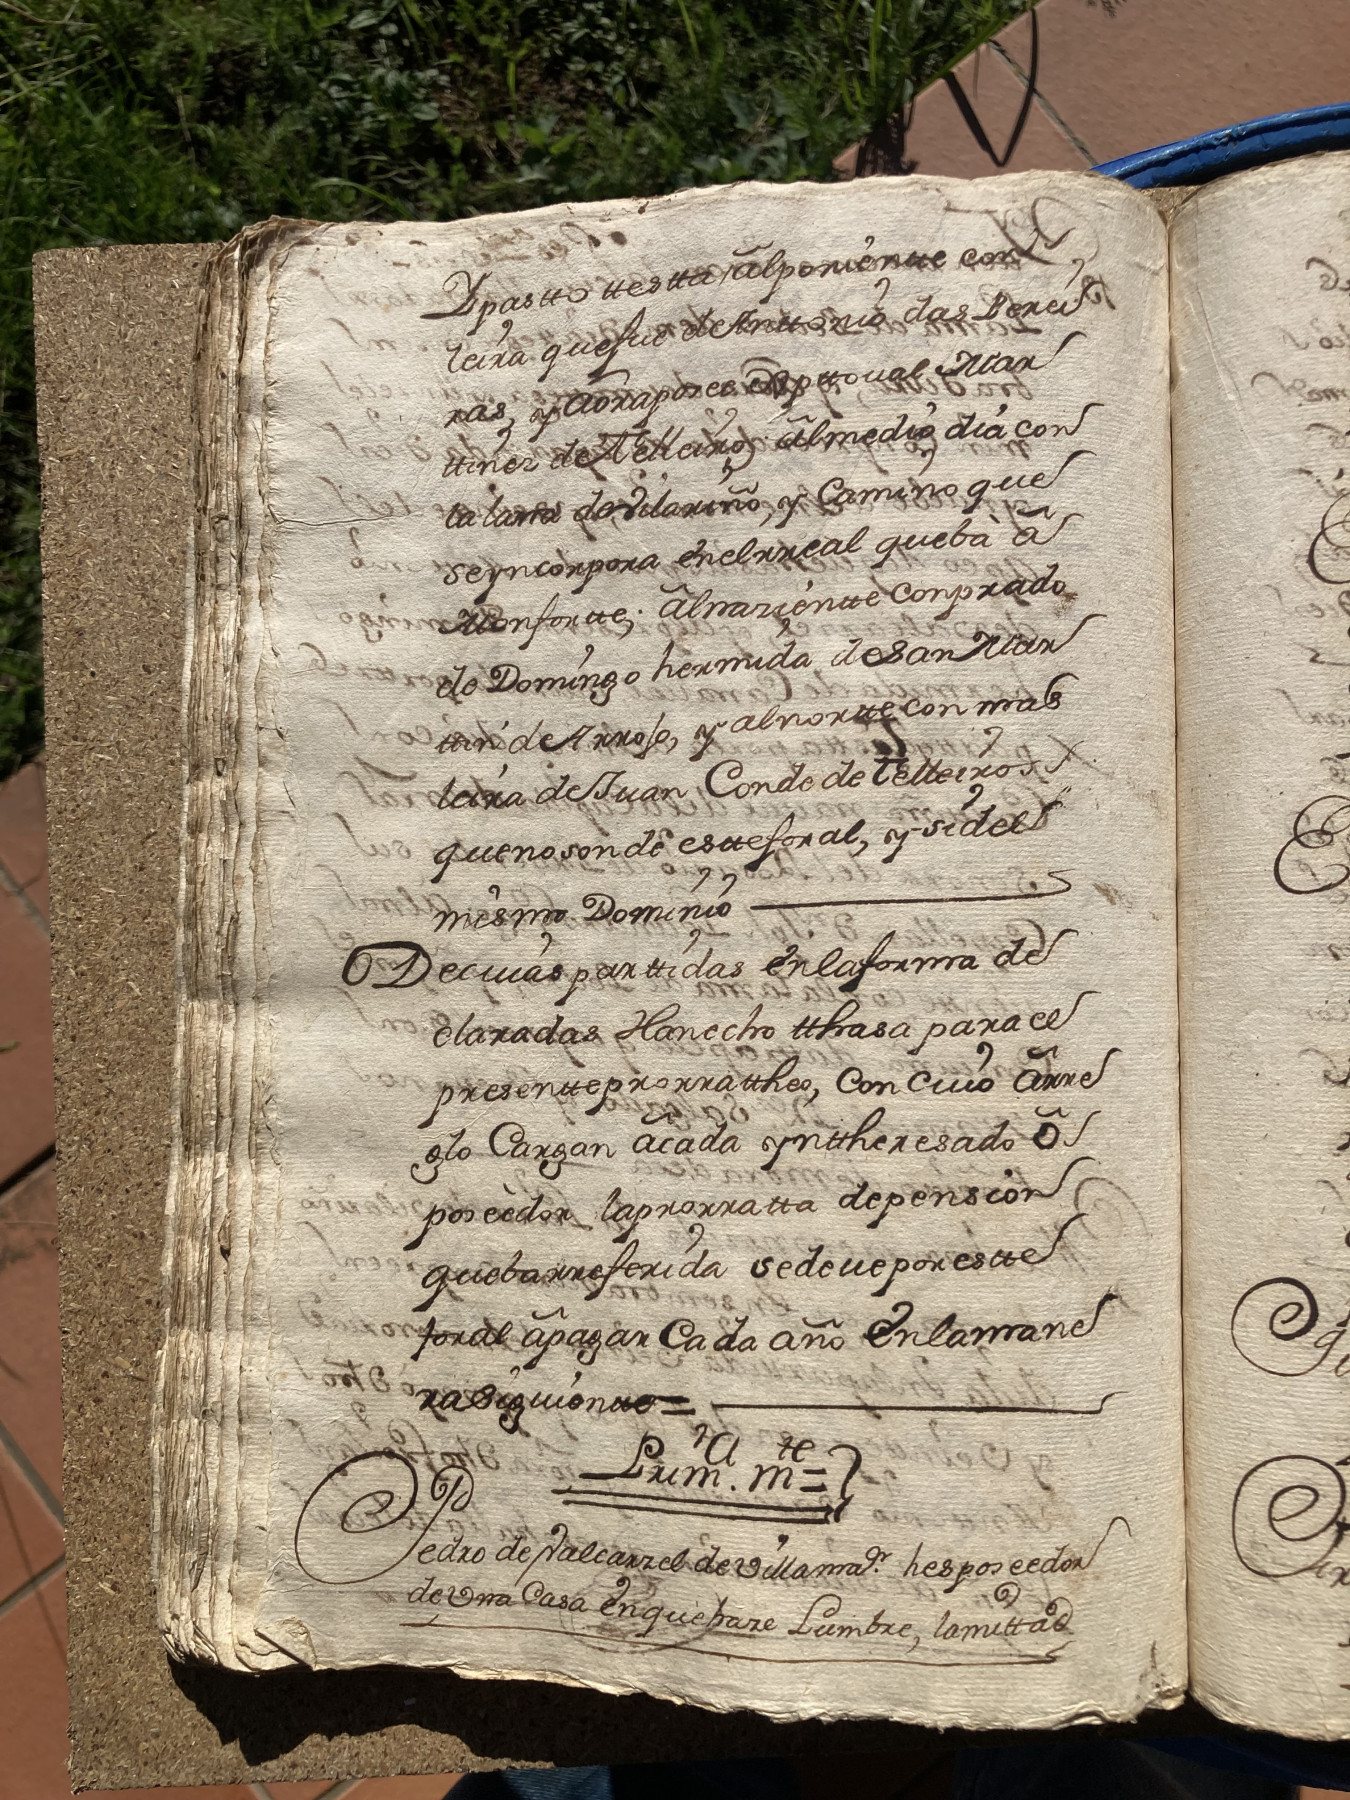 Y pastto ttestta ãl poniéntte con
leira que fue de Anttonio das Perei
ras, y aõra posee Xpttoual Mar
ttinez de Telleiro; ãl medio dia con
la lama de Vilariño, y Camino que
se yncorpora ên el rreal que bà ã
Monfortte; ãl naziéntte con prado
de Domingo hermida de San Mar
ttin de Arrojo, y al nortte con mas
leira de Juan Conde de Telleiro
que no son de estte foral, y si del
mismo Dominio
De cuias parttidas ên la forma de
claradas Han echo tthasa para el
presentte prorrattheo, Con cuio ãrre
glo Cargan ã cada yntthersado õ
poseédor la prorratta de pension
que ba rreferida se deue por estte
foral ã pagar Cada año ên la mane
ra siguientte =
Prim.ra m.te =
Pedro de Valcarzel de Villamr. hes poseedor
de vna Casa ên que haze Lumbre, la mittad